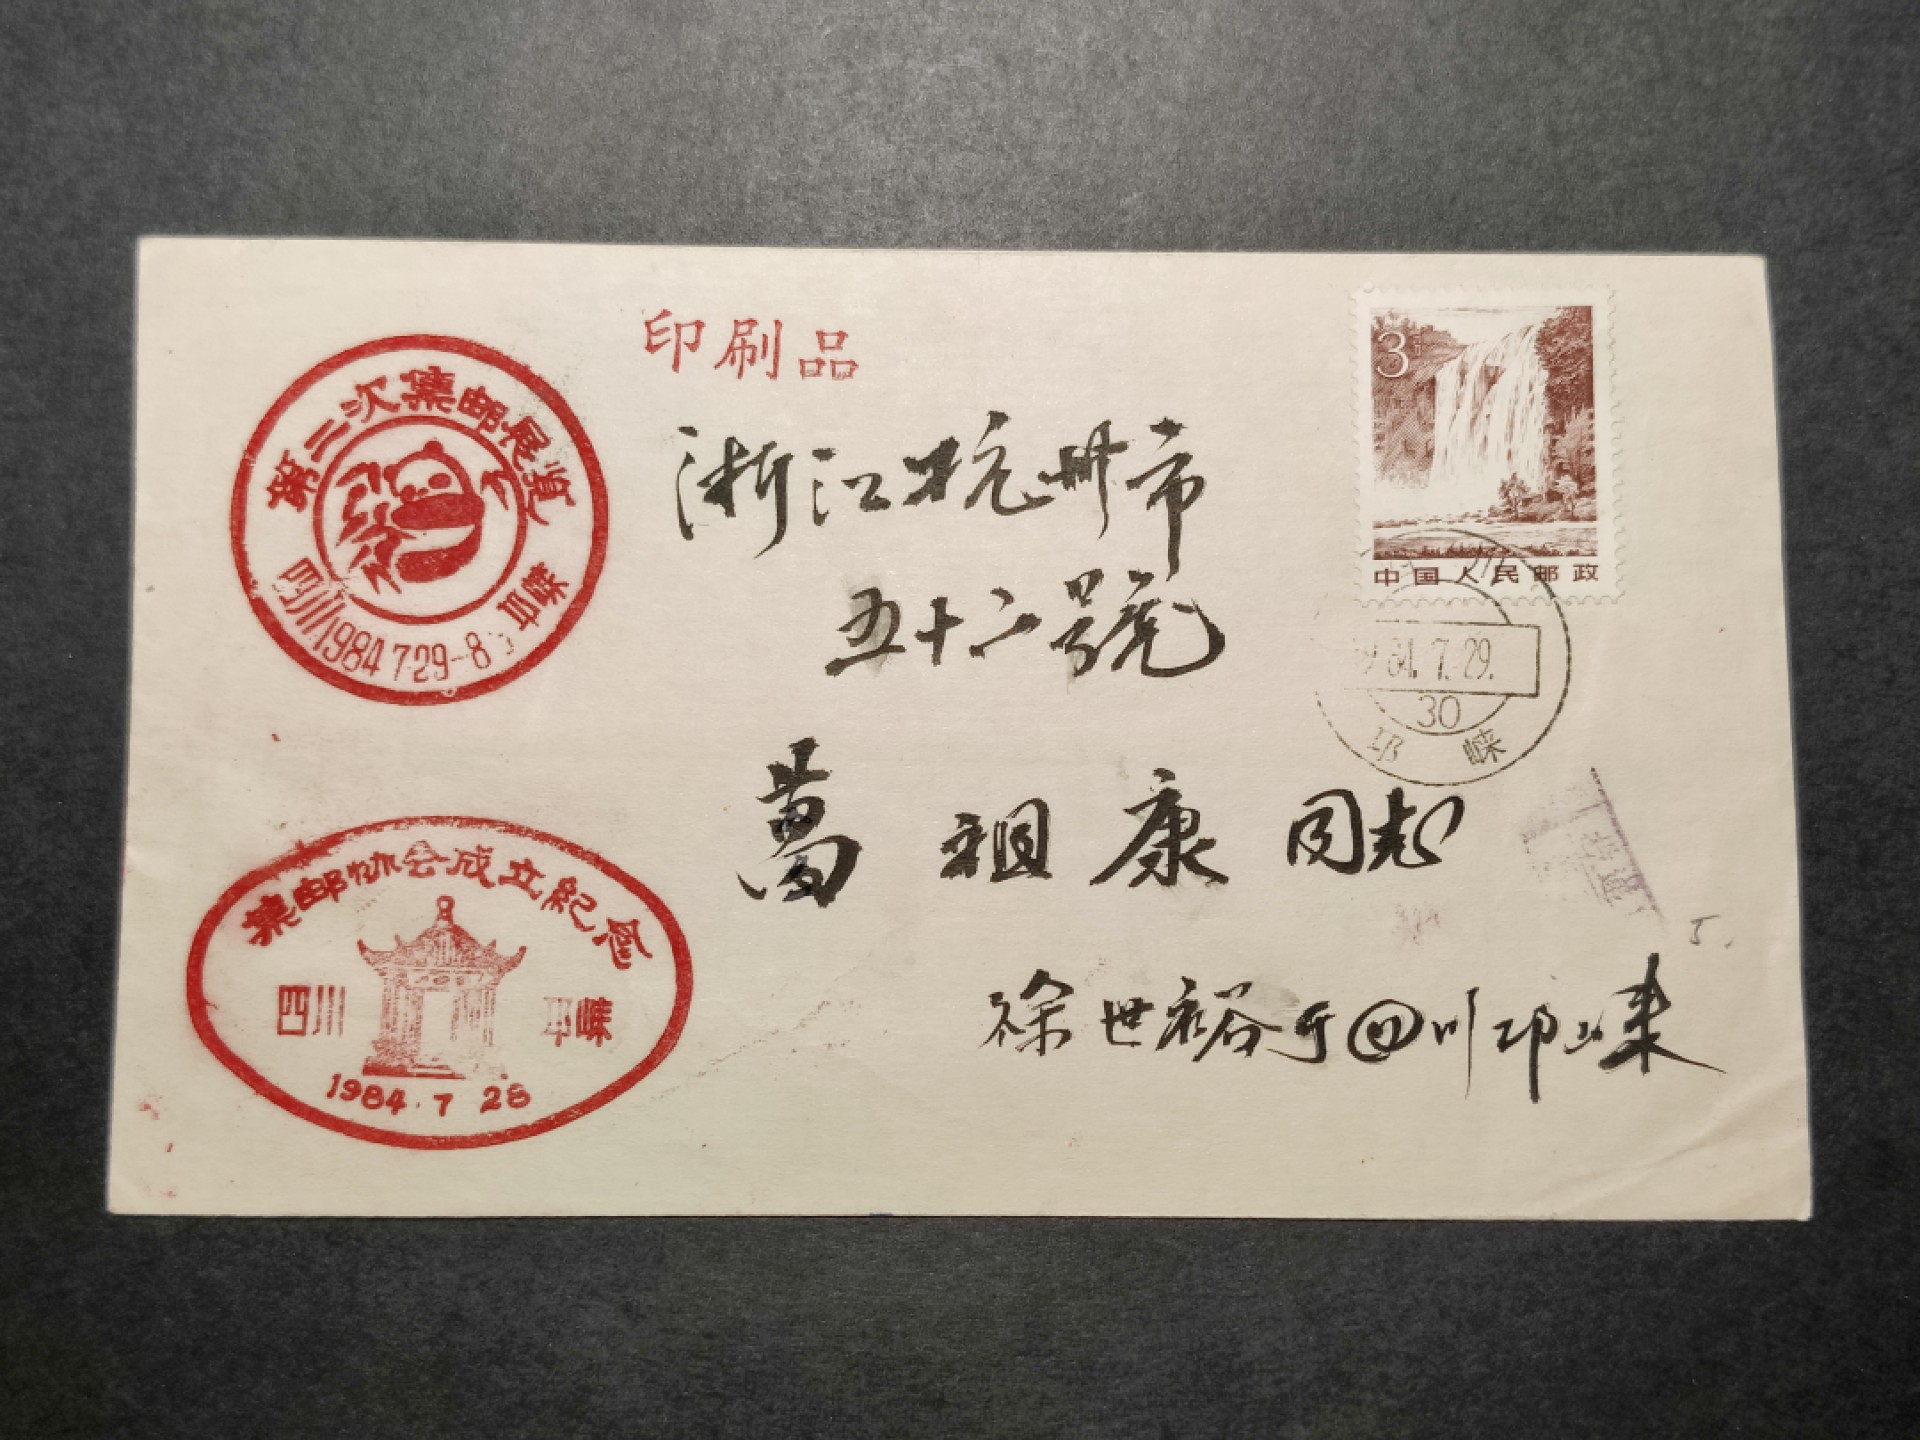 印刷品
第二次集邮展览
四川 邛崃
1984 7 29-8
集邮协会成立纪念
四川 邛崃
1984.7 28
3
中国人民邮政
84.7.29.
30
邛崃
浙江杭州市
五十二號
葛祖康同志
徐世裕于四川邛崃
5.